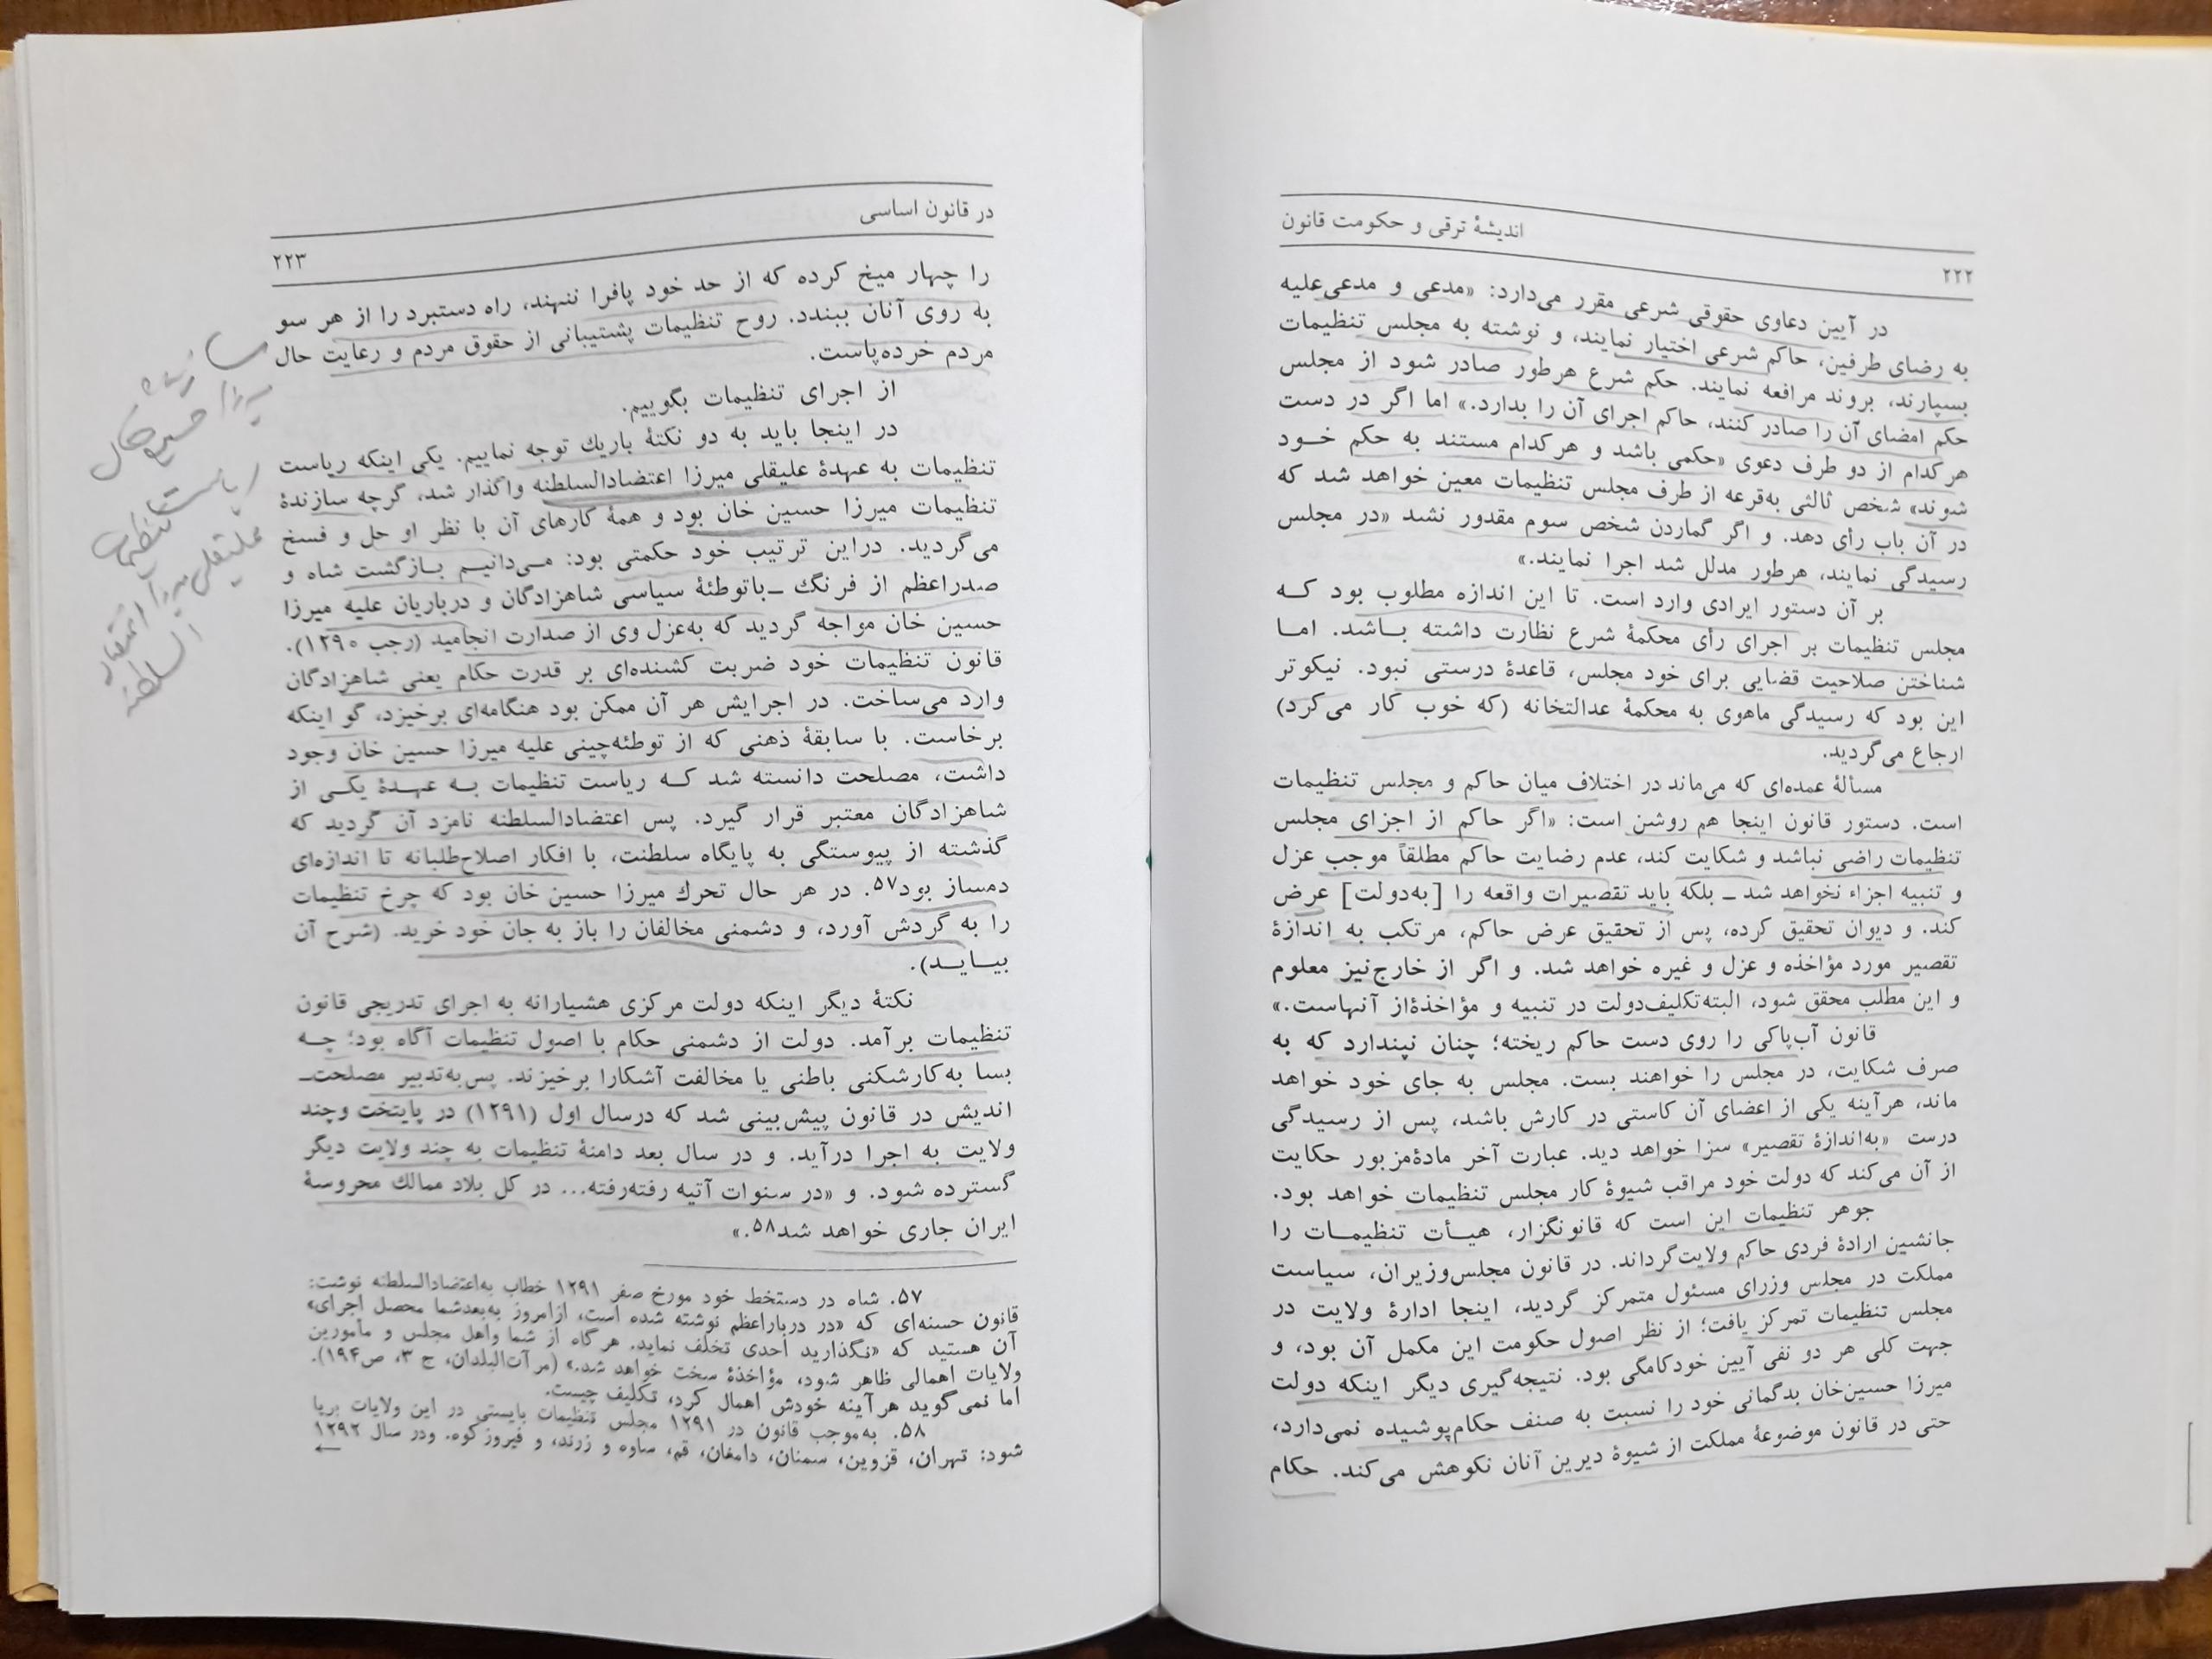 اندیشهٔ ترقی و حکومت قانون
۲۲۲
در آیین دعاوی حقوقی شرعی مقرر می‌دارد: «مدعی و مدعی‌علیه
به رضای طرفین، حاکم شرعی اختیار نمایند، و نوشته به مجلس تنظیمات
بسپارند، بروند مرافعه نمایند. حکم شرع هرطور صادر شود از مجلس
حکم امضای آن را صادر کنند، حاکم اجرای آن را بدارد.» اما اگر در دست
هرکدام از دو طرف دعوی «حکمی باشد و هرکدام مستند به حکم خود
شوند» شخص ثالثی به‌قرعه از طرف مجلس تنظیمات معین خواهد شد که
در آن باب رأی دهد. و اگر گماردن شخص سوم مقدور نشد «در مجلس
رسیدگی نمایند، هرطور مدلل شد اجرا نمایند.»
بر آن دستور ایرادی وارد است. تا این اندازه مطلوب بود که
مجلس تنظیمات بر اجرای رأی محکمهٔ شرع نظارت داشته باشد. اما
شناختن صلاحیت قضایی برای خود مجلس، قاعدهٔ درستی نبود. نیکوتر
این بود که رسیدگی ماهوی به محکمهٔ عدالتخانه (که خوب کار می‌کرد)
ارجاع می‌گردید.
مسألهٔ عمده‌ای که می‌ماند در اختلاف میان حاکم و مجلس تنظیمات
است. دستور قانون اینجا هم روشن است: «اگر حاکم از اجزای مجلس
تنظیمات راضی نباشد و شکایت کند، عدم رضایت حاکم مطلقاً موجب عزل
و تنبیه اجزاء نخواهد شد ــ بلکه باید تقصیرات واقعه را [به‌دولت] عرض
کند. و دیوان تحقیق کرده، پس از تحقیق عرض حاکم، مرتکب به اندازهٔ
تقصیر مورد مؤاخذه و عزل و غیره خواهد شد. و اگر از خارج‌نیز معلوم
و این مطلب محقق شود، البته‌تکلیف‌دولت در تنبیه و مؤاخذهٔ‌از آنهاست.»
قانون آب‌پاکی را روی دست حاکم ریخته؛ چنان نپندارد که به
صرف شکایت، در مجلس را خواهند بست. مجلس به جای خود خواهد
ماند، هرآینه یکی از اعضای آن کاستی در کارش باشد، پس از رسیدگی
درست «به‌اندازهٔ تقصیر» سزا خواهد دید. عبارت آخر مادهٔ‌مزبور حکایت
از آن می‌کند که دولت خود مراقب شیوهٔ کار مجلس تنظیمات خواهد بود.
جوهر تنظیمات این است که قانونگزار، هیأت تنظیمات را
جانشین ارادهٔ فردی حاکم ولایت‌گرداند. در قانون مجلس‌وزیران، سیاست
مملکت در مجلس وزرای مسئول متمرکز گردید، اینجا ادارهٔ ولایت در
مجلس تنظیمات تمرکز یافت؛ از نظر اصول حکومت این مکمل آن بود، و
جهت کلی هر دو نفی آیین خودکامگی بود. نتیجه‌گیری دیگر اینکه دولت
میرزا حسین‌خان بدگمانی خود را نسبت به صنف حکام‌پوشیده نمی‌دارد،
حتی در قانون موضوعهٔ مملکت از شیوهٔ دیرین آنان نکوهش می‌کند. حکام
در قانون اساسی
۲۲۳
را چهار میخ کرده که از حد خود پافرا ننهند، راه دستبرد را از هر سو
به روی آنان ببندد. روح تنظیمات پشتیبانی از حقوق مردم و رعایت حال
مردم خرده‌پاست.
از اجرای تنظیمات بگوییم.
در اینجا باید به دو نکتهٔ باریك توجه نماییم. یکی اینکه ریاست
تنظیمات به عهدهٔ علیقلی میرزا اعتضادالسلطنه واگذار شد، گرچه سازندهٔ
تنظیمات میرزا حسین خان بود و همهٔ کارهای آن با نظر او حل و فسخ
می‌گردید. دراین ترتیب خود حکمتی بود: می‌دانیم بازگشت شاه و
صدراعظم از فرنگ ــ باتوطئهٔ سیاسی شاهزادگان و درباریان علیه میرزا
حسین خان مواجه گردید که به‌عزل وی از صدارت انجامید (رجب ۱۲۹۰).
قانون تنظیمات خود ضربت کشنده‌ای بر قدرت حکام یعنی شاهزادگان
وارد می‌ساخت. در اجرایش هر آن ممکن بود هنگامه‌ای برخیزد، گو اینکه
برخاست. با سابقهٔ ذهنی که از توطئه‌چینی علیه میرزا حسین خان وجود
داشت، مصلحت دانسته شد که ریاست تنظیمات به عهدهٔ یکی از
شاهزادگان معتبر قرار گیرد. پس اعتضادالسلطنه نامزد آن گردید که
گذشته از پیوستگی به پایگاه سلطنت، با افکار اصلاح‌طلبانه تا اندازه‌ای
دمساز بود۵۷. در هر حال تحرك میرزا حسین خان بود که چرخ تنظیمات
را به گردش آورد، و دشمنی مخالفان را باز به جان خود خرید. (شرح آن
بیاید).
نکتهٔ دیگر اینکه دولت مرکزی هشیارانه به اجرای تدریجی قانون
تنظیمات برآمد. دولت از دشمنی حکام با اصول تنظیمات آگاه بود؛ چه
بسا به‌کارشکنی باطنی یا مخالفت آشکارا برخیزند. پس‌به‌تدبیر مصلحت‌ــ
اندیش در قانون پیش‌بینی شد که درسال اول (۱۲۹۱) در پایتخت وچند
ولایت به اجرا درآید. و در سال بعد دامنهٔ تنظیمات به چند ولایت دیگر
گسترده شود. و «در سنوات آتیه رفته‌رفته... در کل بلاد ممالك محروسهٔ
ایران جاری خواهد شد۵۸.»
۵۷. شاه در دستخط خود مورخ صفر ۱۲۹۱ خطاب به‌اعتضادالسلطنه نوشت:
قانون حسنه‌ای که «در درباراعظم نوشته شده است، ازامروز به‌بعدشما محصل اجرای»
آن هستید که «نگذارید احدی تخلف نماید. هرگاه از شما واهل مجلس و مأمورین
ولایات اهمالی ظاهر شود، مؤاخذهٔ سخت خواهد شد.» (مرآت‌البلدان، ج ۳، ص۱۹۴).
اما نمی‌گوید هرآینه خودش اهمال کرد، تکلیف چیست.
۵۸. به‌موجب قانون در ۱۲۹۱ مجلس تنظیمات بایستی در این ولایات برپا
شود: تهران، قزوین، سمنان، دامغان، قم، ساوه و زرند، و فیروزکوه. ودر سال ۱۲۹۲
←
سازنده
میرزا حسین خان
ریاست تنظیمات
علیقلی میرزا اعتضاد
السلطنه